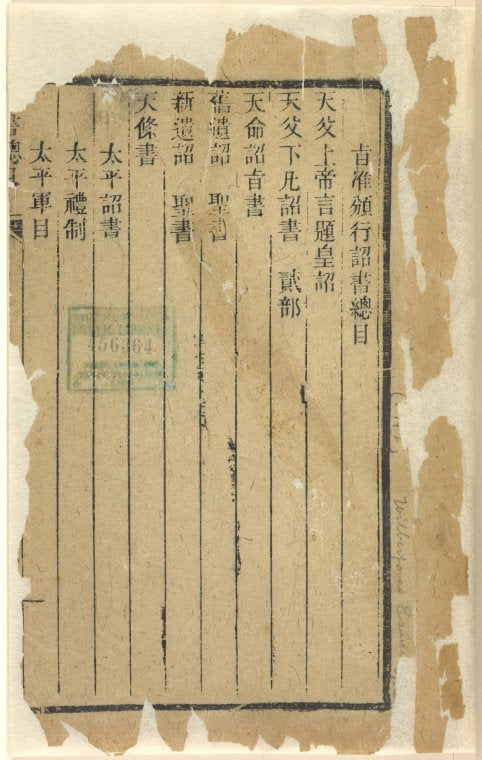 旨准頒行詔書總目
天父上帝言題皇詔
天父下凡詔書 貳部
天命詔旨書
舊遺詔 聖書
新遺詔 聖書
天條書
太平詔書
太平禮制
太平軍目
456364